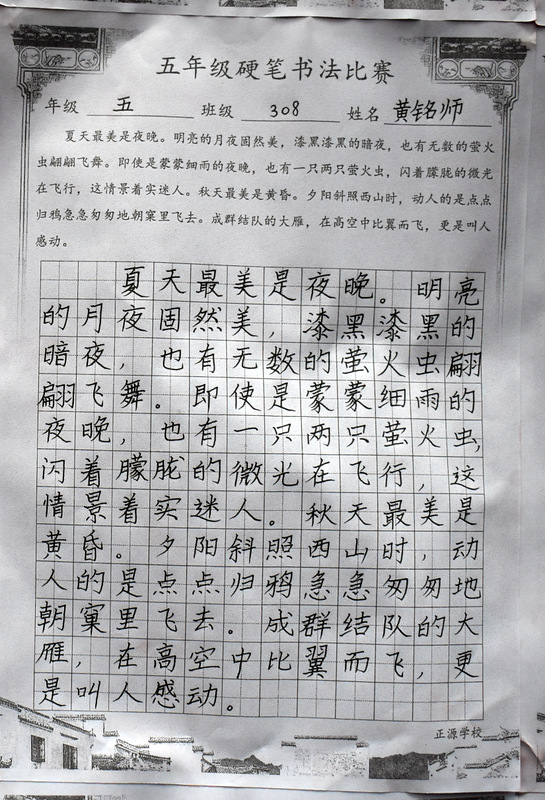 五年级硬笔书法比赛
年级 五 班级 308 姓名 黄铭师
夏天最美是夜晚。明亮的月夜固然美，漆黑漆黑的暗夜，也有无数的萤火
虫翩翩飞舞。即使是蒙蒙细雨的夜晚，也有一只两只萤火虫，闪着朦胧的微光
在飞行，这情景着实迷人。秋天最美是黄昏。夕阳斜照西山时，动人的是点点
归鸦急急匆匆地朝窠里飞去。成群结队的大雁，在高空中比翼而飞，更是叫人
感动。
夏天最美是夜晚。明亮
的月夜固然美，漆黑漆黑的
暗夜，也有无数的萤火虫翩
翩飞舞。即使是蒙蒙细雨的
夜晚，也有一只两只萤火虫，
闪着朦胧的微光在飞行，这
情景着实迷人。秋天最美是
黄昏。夕阳斜照西山时，动
人的是点点归鸦急急匆匆地
朝窠里飞去。成群结队的大
雁，在高空中比翼而飞，更
是叫人感动。
正源学校